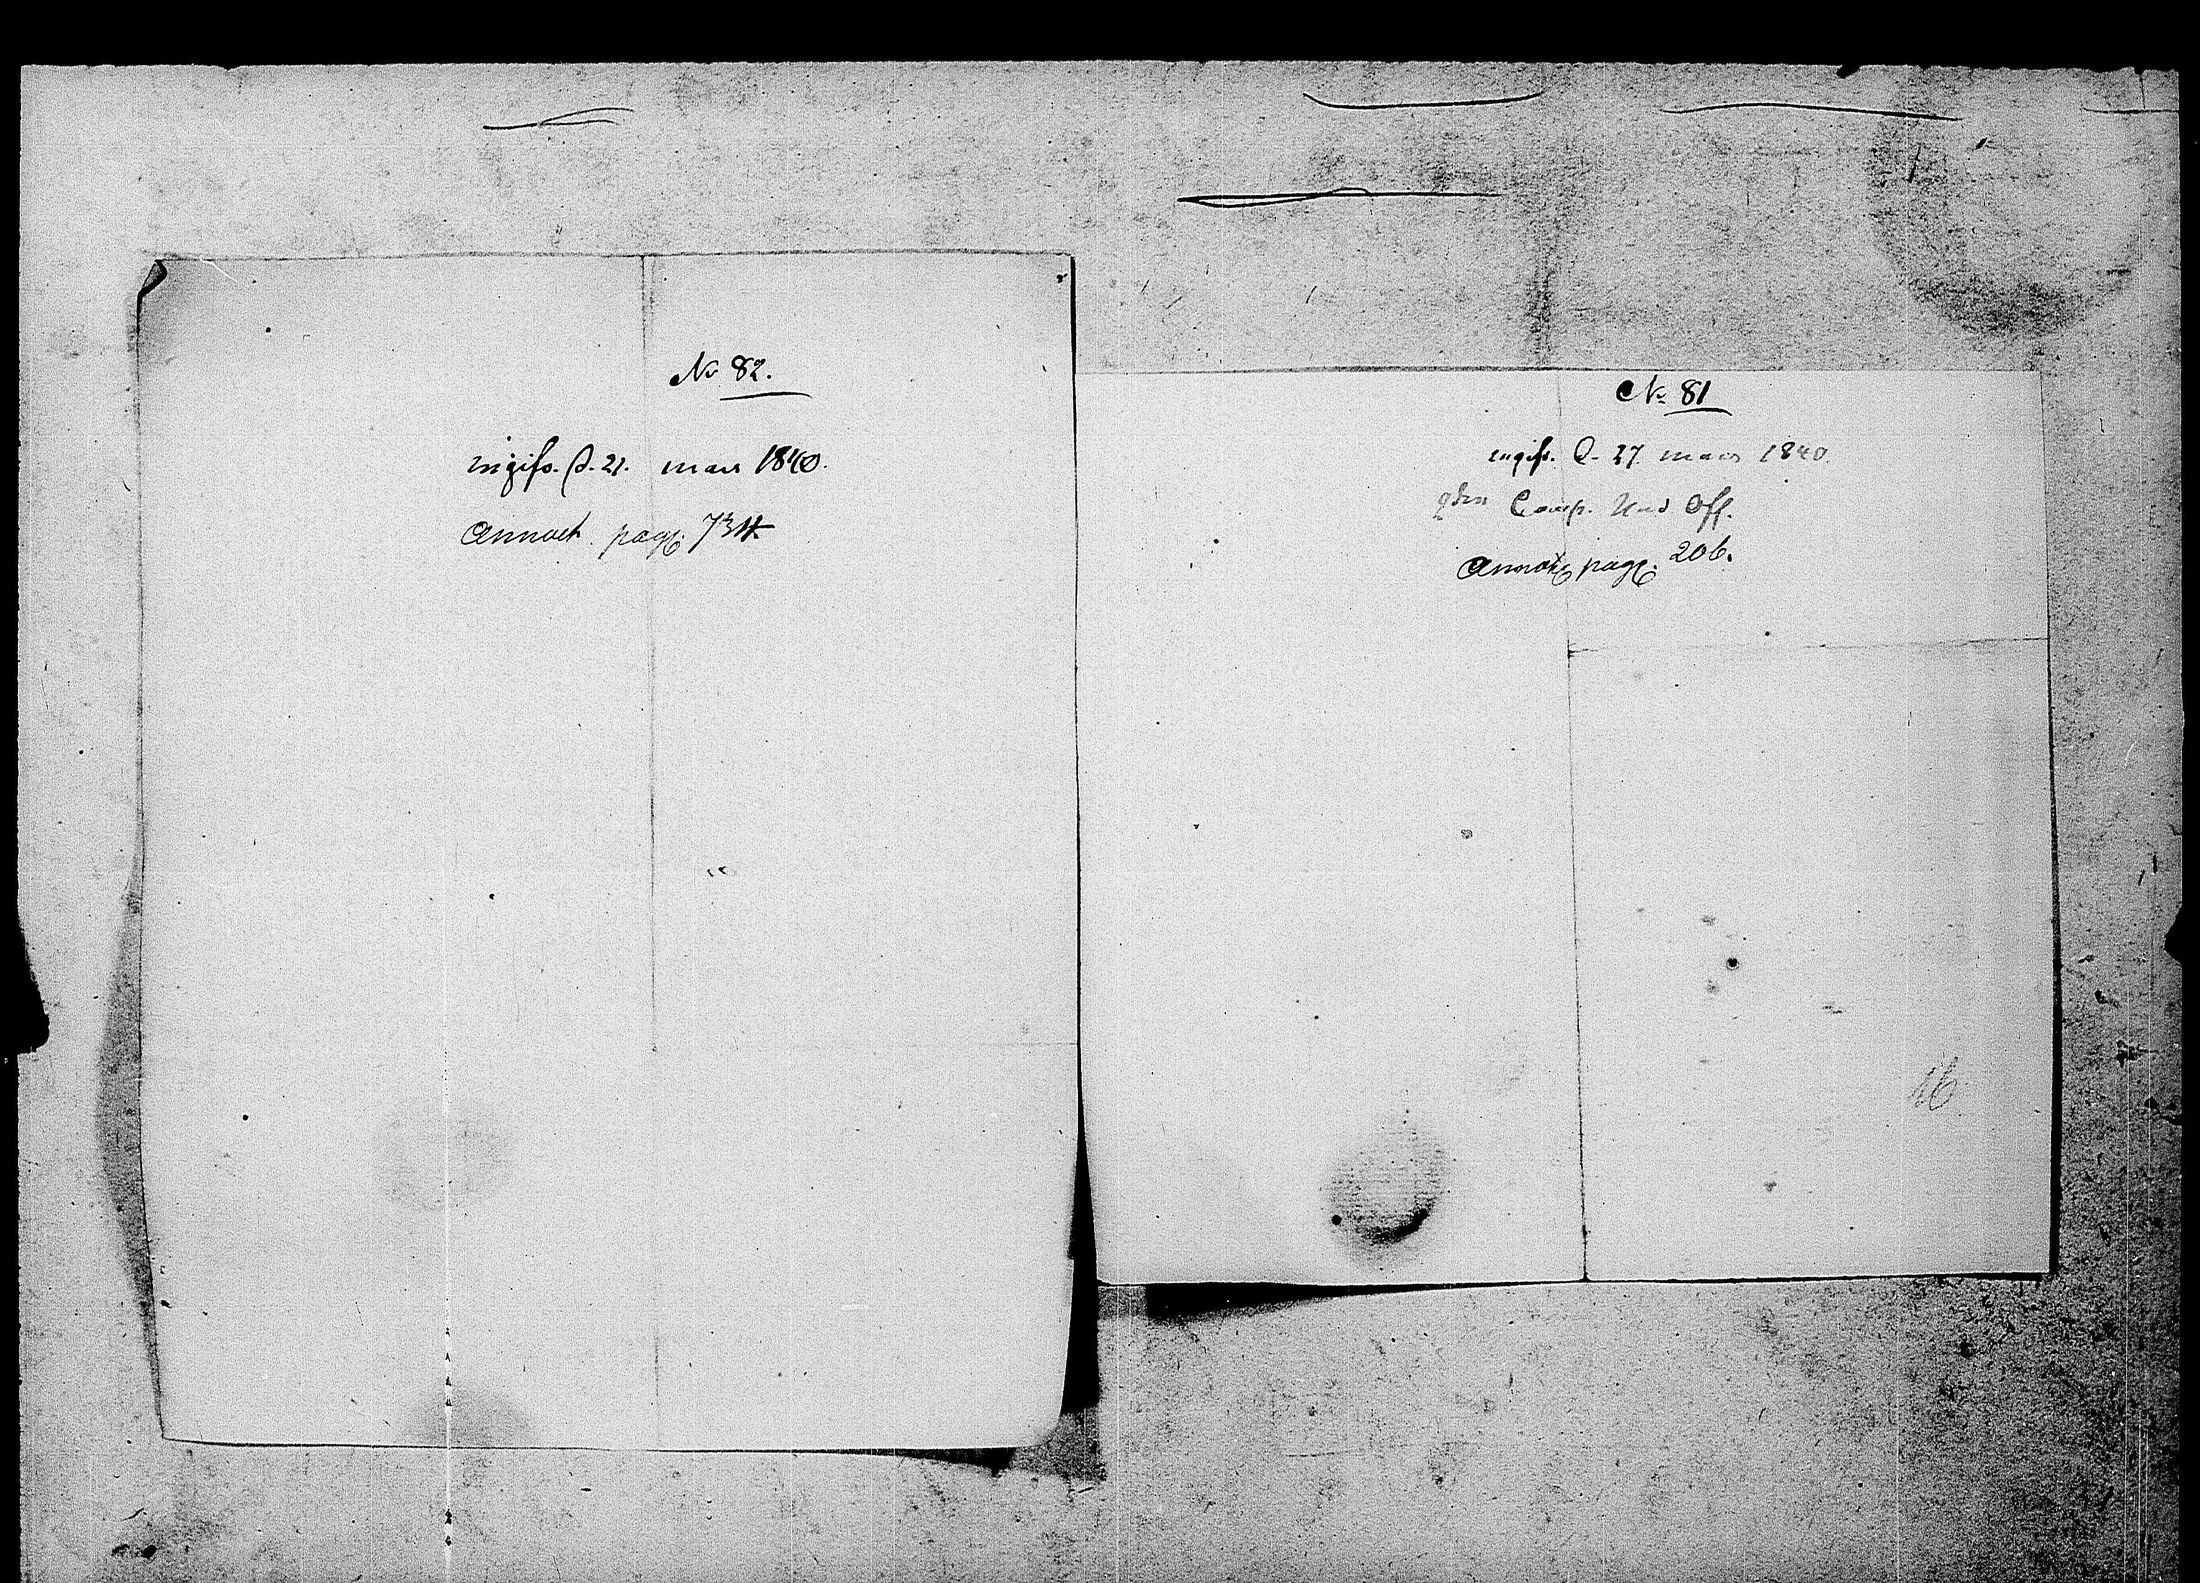 No. 82.
ingifv. d. 21. mars 1840.
Annoet. pag. 734
No. 81
ingifv. d. 27. mars 1840.
Comp. Und Off.
Annot. pag. 206.